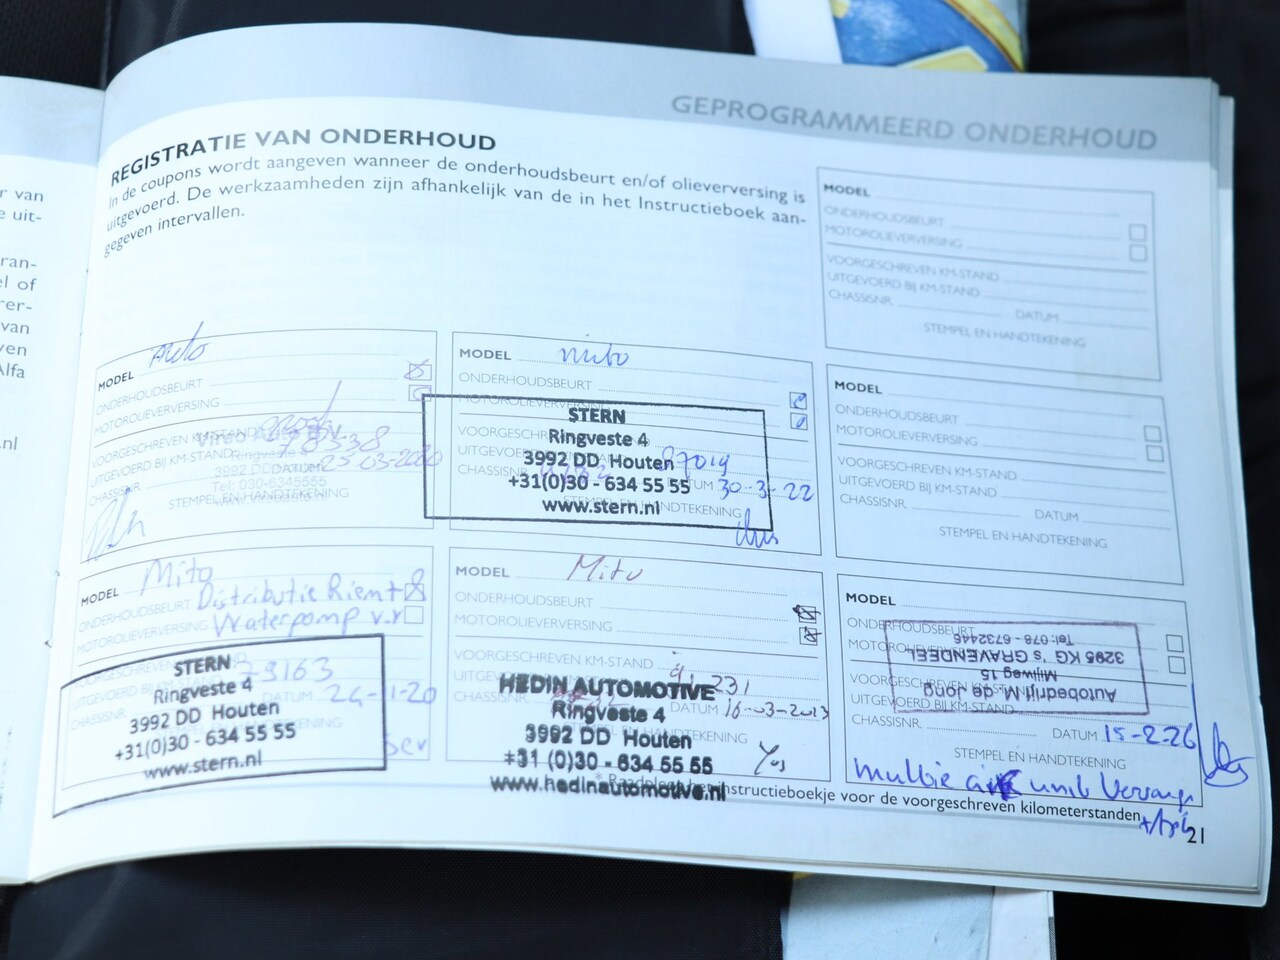 GEPROGRAMMEERD ONDERHOUD
REGISTRATIE VAN ONDERHOUD
In de coupons wordt aangeven wanneer de onderhoudsbeurt en/of olieverversing is
uitgevoerd. De werkzaamheden zijn afhankelijk van de in het Instructieboek aan-
gegeven intervallen.
r van
e uit-
ran-
el of
rer-
van
ven
Alfa
.nl
MODEL
ONDERHOUDSBEURT
MOTOROLIEVERVERSING
VOORGESCHREVEN KM-STAND
UITGEVOERD BIJ KM-STAND
CHASSISNR.
DATUM
STEMPEL EN HANDTEKENING
MODEL
ONDERHOUDSBEURT
MOTOROLIEVERVERSING
VOORGESCHREVEN KM-STAND
UITGEVOERD BIJ KM-STAND 78338
CHASSISNR. DATUM 25-03-2020
Ringveste
3992 DD
Tel: 030-6345555
STEMPEL EN HANDTEKENING
MODEL mito
ONDERHOUDSBEURT
MOTOROLIEVERVERSING
STERN
Ringveste 4
3992 DD Houten
+31(0)30 - 634 55 55
www.stern.nl
VOORGESCHR
UITGEVOERD 87019
CHASSISNR. DATUM 30-3-22
STEMPEL EN HANDTEKENING
MODEL
ONDERHOUDSBEURT
MOTOROLIEVERVERSING
VOORGESCHREVEN KM-STAND
UITGEVOERD BIJ KM-STAND
CHASSISNR.
DATUM
STEMPEL EN HANDTEKENING
MODEL Mito
ONDERHOUDSBEURT Distributie Riem +
MOTOROLIEVERVERSING Waterpomp v.v
STERN
Ringveste 4
3992 DD Houten
+31(0)30 - 634 55 55
www.stern.nl
79163
DATUM 24-11-20
HANDTEKENING
MODEL Mito
ONDERHOUDSBEURT
MOTOROLIEVERVERSING
VOORGESCHREVEN KM-STAND
91.231
CHASSISNR. DATUM 16-03-2023
HEDIN AUTOMOTIVE
Ringveste 4
3992 DD Houten
+31 (0)30 - 634 55 55
www.hedinautomotive.nl
HANDTEKENING
MODEL
ONDERHOUDSBEURT
Autobedrijf M. de Jong
Mijlweg 15
3295 KG 's GRAVENDEEL
Tel: 078 - 6732446
UITGEVOERD BIJ KM-STAND
CHASSISNR.
DATUM 15-2-26
STEMPEL EN HANDTEKENING
instructieboekje voor de voorgeschreven kilometerstanden
21